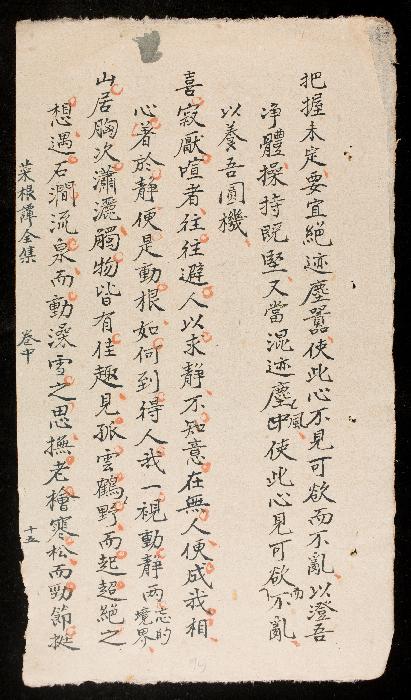 把握未定要宜絕迹塵囂使此心不見可欲而不亂以澄吾
淨體操持既堅又當混迹塵風使此心見可欲而不亂
以養吾圓機
喜寂厭喧者往往避人以求靜不知意在無人便成我相
心著於靜便是動根如何到得人我一視動靜兩忘的境界
山居胸次瀟灑觸物皆有佳趣見孤雲鶴野而起超絕之
想遇石澗流泉而動澡雪之思撫老檜寒松而勁節挺
菜根譚全集 卷中 十五